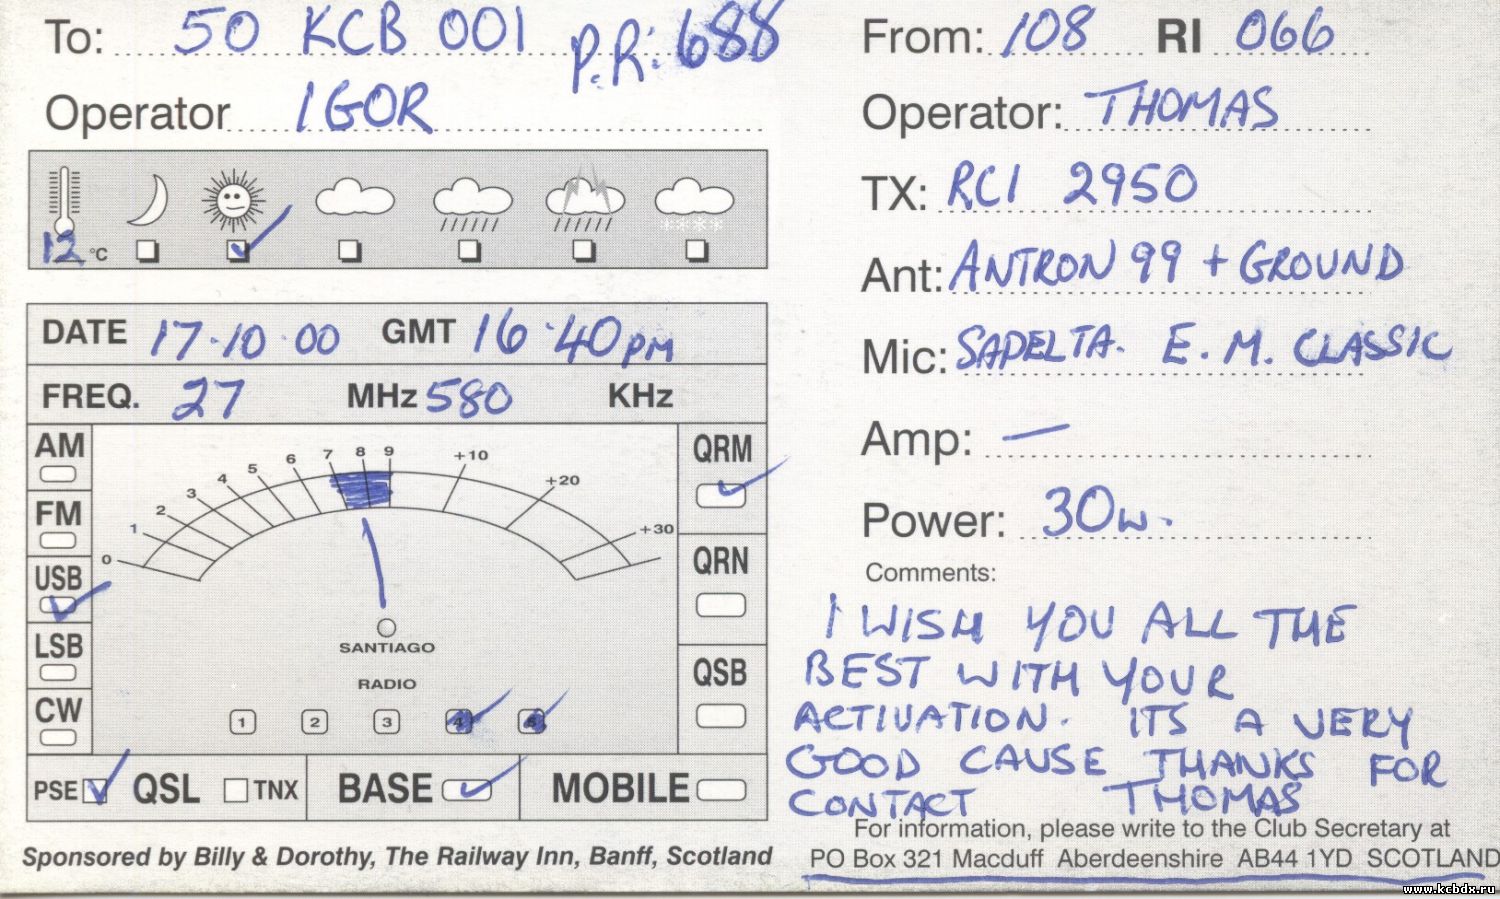 To: 50 KCB 001 P.R: 688
Operator IGOR
12 °C
DATE 17.10.00 GMT 16.40pm
FREQ. 27 MHz 580 KHz
AM
FM
USB
LSB
CW
0 1 2 3 4 5 6 7 8 9 +10 +20 +30
SANTIAGO
RADIO
1 2 3 4 5
QRM
QRN
QSB
PSE QSL TNX BASE MOBILE
Sponsored by Billy & Dorothy, The Railway Inn, Banff, Scotland
From: 108 RI 066
Operator: THOMAS
TX: RCI 2950
Ant: ANTRON 99 + GROUND
Mic: SADELTA. E. M. CLASSIC
Amp: —
Power: 30w.
Comments:
I WISH YOU ALL THE
BEST WITH YOUR
ACTIVATION. ITS A VERY
GOOD CAUSE THANKS FOR
CONTACT THOMAS
For information, please write to the Club Secretary at
PO Box 321 Macduff Aberdeenshire AB44 1YD SCOTLAND
www.kcbdx.ru